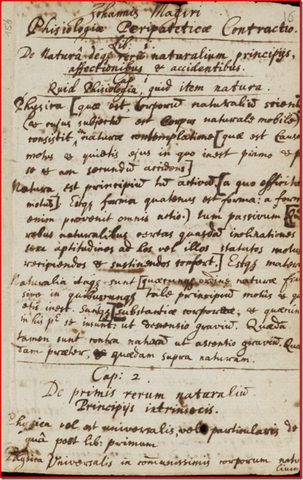 Johannis Magiri
Phisiologiæ Peripateticæ Contractio.
Lib:
De Naturâ deq3 rerū naturalium principijs,
affectionibus et accidentibus.
Cap:
Quid Phisiologia, quid item natura
Physica [quæ est corporū naturaliū scientia
(et cujus subjectū est Corpus naturale mobile)
consistit in naturæ contemplatione [quæ est causa
motus et quietis ejus in quo inest primo et per
se et non secundū accidens]
Natura est principiū tū activū [a quo efficitur
motus] Estq3 forma quatenus est forma: a forma
enim provenit omnis actio.) tum passivum [
rebus naturalibus certas quasdā inclinationes
seu aptitudines ad hos vel illos statutos motus
recipiendos et sustinendos confert.] Estq3 materia
Naturalia itaq3 sunt [ordine naturæ
sive in quibuscunq3 tale principium motus et qui
etis inest. Suntq3 [substantiæ corporeæ, et quæcun
in his p se insunt: ut descensio gravium. Quædā
tamen sunt contra naturā ut ascentio graviū. Quæ
dam præter, et quædam supra naturam.
Cap: 2.
De primis rerum naturaliū
Principijs intrinsecis.
Physica vel est universalis, vel particularis de
quâ post lib: primum
Physica Universalis in communissimis corporum natu
raliū